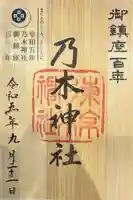 御鎮座百年
乃木神社
東京
令和五年
乃木神社
御鎮座
百年
令和五年九月二十一日